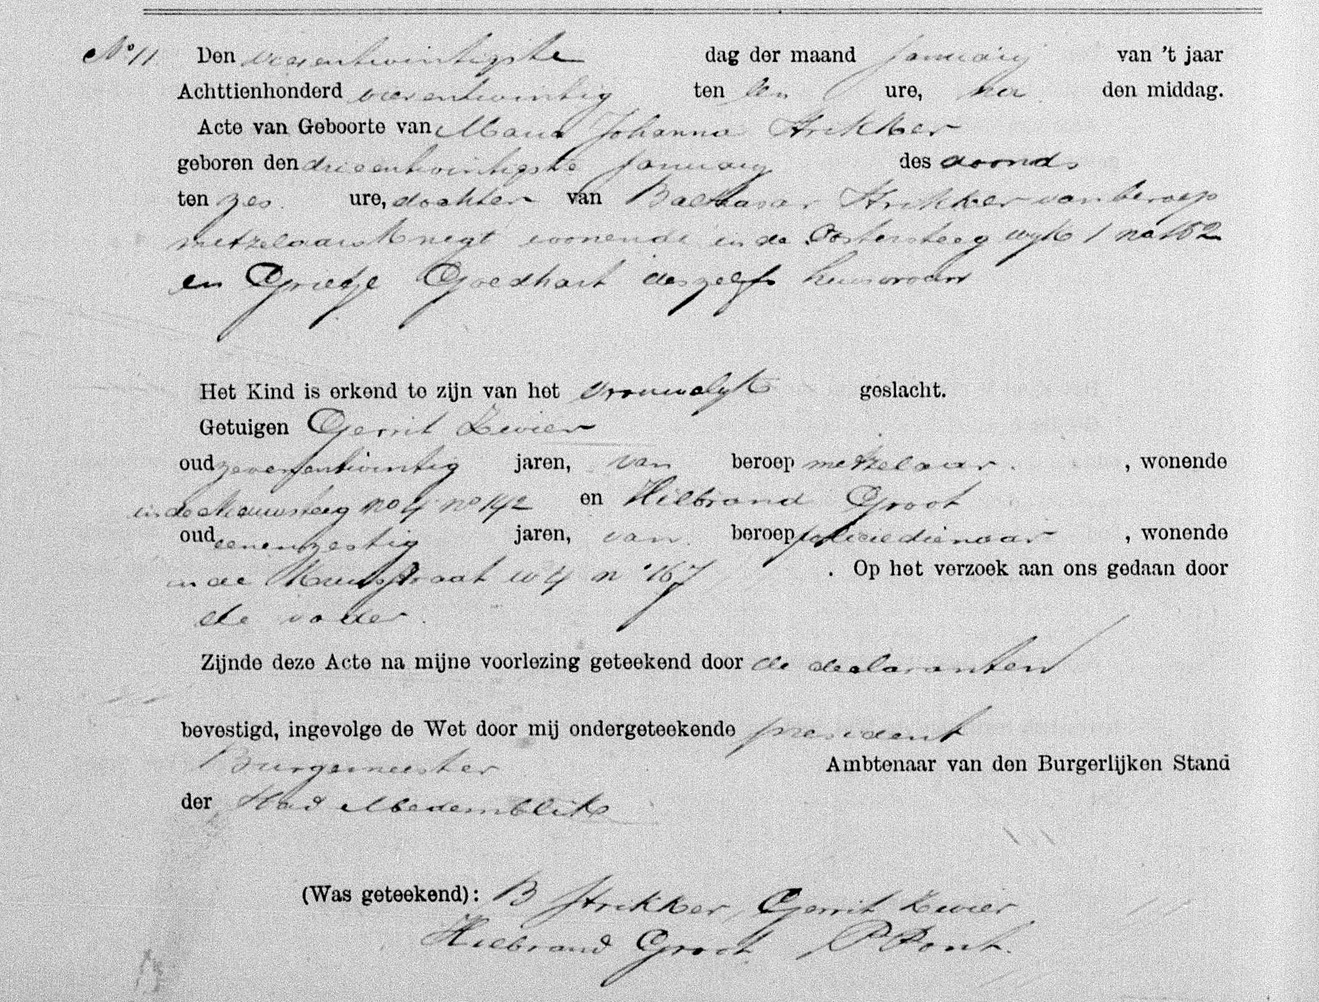 No 11 Den vierentwintigste dag der maand January van 't jaar
Achttienhonderd vierentwintig ten tien ure, voor den middag.
Acte van Geboorte van Maria Johanna Strikker
geboren den drieentwintigste January des avonds
ten zes ure, dochter van Balthasar Strikker van beroep
metzelaarsknegt woonende in de Oostersteeg wyk 1 no 162
en Grietje Goedhart deszelfs huisvrouw
Het Kind is erkend te zijn van het vrouwelyk geslacht.
Getuigen Gerrit Zwier
oud zevenentwintig jaren, van beroep metzelaar. , wonende
in de Nieuwsteeg no 4 no 142 en Hilbrand Groot
oud eenenzestig jaren, van beroep policiedienaar , wonende
in de straat w 4 no 167 . Op het verzoek aan ons gedaan door
de vader.
Zijnde deze Acte na mijne voorlezing geteekend door de declaranten
bevestigd, ingevolge de Wet door mij ondergeteekende president
Burgemeester Ambtenaar van den Burgerlijken Stand
der Stad Medemblik
(Was geteekend): B Strikker, Gerrit Zwier
Hilbrand Groot P Pont.